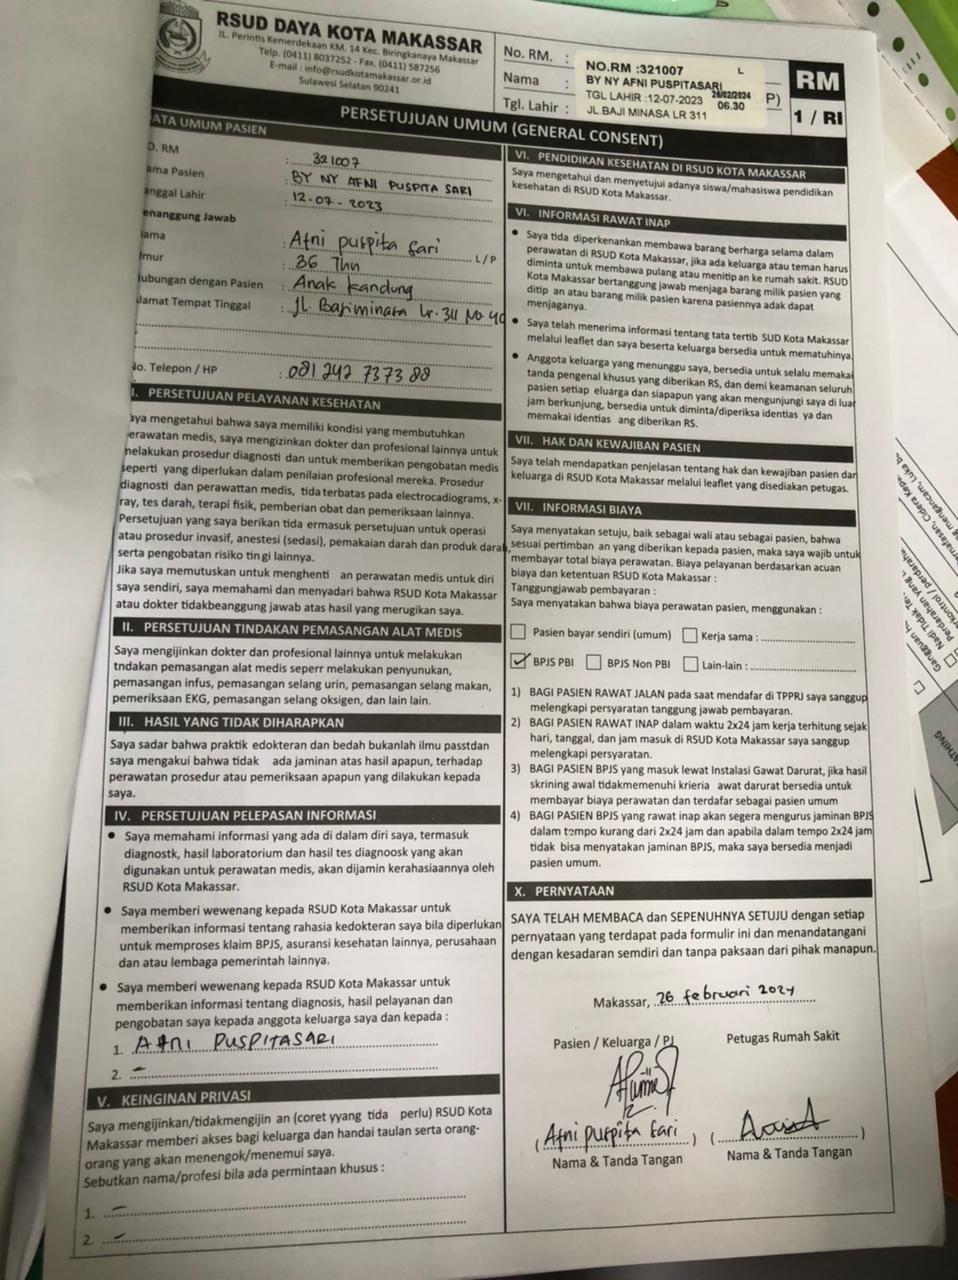 RSUD DAYA KOTA MAKASSAR
JL. Perintis Kemerdekaan KM. 14 Kec. Biringkanaya Makassar
Telp. (0411) 8037252 - Fax. (0411) 587256
E-mail : info@rsudkotamakassar.or.id
Sulawesi Selatan 90241
No. RM. :
Nama :
Tgl. Lahir :
NO.RM :321007 L
BY NY AFNI PUSPITASARI
TGL LAHIR :12-07-2023
26/02/2024
06.30
JL.BAJI MINASA LR 311
P)
RM
1 / RI
PERSETUJUAN UMUM (GENERAL CONSENT)
ATA UMUM PASIEN
O. RM : 321007
ama Pasien : BY NY AFNI PUSPITA SARI
anggal Lahir : 12-07-2023
enanggung Jawab
ama : Afni puspita sari L/P
mur : 36 Thn
ubungan dengan Pasien : Anak kandung
lamat Tempat Tinggal : Jl. Bajiminasa Lr. 311 No 40
No. Telepon / HP : 081 242 7373 88
I. PERSETUJUAN PELAYANAN KESEHATAN
aya mengetahui bahwa saya memiliki kondisi yang membutuhkan
erawatan medis, saya mengizinkan dokter dan profesional lainnya untuk
melakukan prosedur diagnosti dan untuk memberikan pengobatan medis
seperti yang diperlukan dalam penilaian profesional mereka. Prosedur
diagnosti dan perawattan medis, tida terbatas pada electrocadiograms, x-
ray, tes darah, terapi fisik, pemberian obat dan pemeriksaan lainnya.
Persetujuan yang saya berikan tida ermasuk persetujuan untuk operasi
atau prosedur invasif, anestesi (sedasi), pemakaian darah dan produk darah,
serta pengobatan risiko tin gi lainnya.
Jika saya memutuskan untuk menghenti an perawatan medis untuk diri
saya sendiri, saya memahami dan menyadari bahwa RSUD Kota Makassar
atau dokter tidakbeanggung jawab atas hasil yang merugikan saya.
II. PERSETUJUAN TINDAKAN PEMASANGAN ALAT MEDIS
Saya mengijinkan dokter dan profesional lainnya untuk melakukan
tndakan pemasangan alat medis seperr melakukan penyunukan,
pemasangan infus, pemasangan selang urin, pemasangan selang makan,
pemeriksaan EKG, pemasangan selang oksigen, dan lain lain.
III. HASIL YANG TIDAK DIHARAPKAN
Saya sadar bahwa praktik edokteran dan bedah bukanlah ilmu passtdan
saya mengakui bahwa tidak ada jaminan atas hasil apapun, terhadap
perawatan prosedur atau pemeriksaan apapun yang dilakukan kepada
saya.
IV. PERSETUJUAN PELEPASAN INFORMASI
• Saya memahami informasi yang ada di dalam diri saya, termasuk
diagnostk, hasil laboratorium dan hasil tes diagnoosk yang akan
digunakan untuk perawatan medis, akan dijamin kerahasiaannya oleh
RSUD Kota Makassar.
• Saya memberi wewenang kepada RSUD Kota Makassar untuk
memberikan informasi tentang rahasia kedokteran saya bila diperlukan
untuk memproses klaim BPJS, asuransi kesehatan lainnya, perusahaan
dan atau lembaga pemerintah lainnya.
• Saya memberi wewenang kepada RSUD Kota Makassar untuk
memberikan informasi tentang diagnosis, hasil pelayanan dan
pengobatan saya kepada anggota keluarga saya dan kepada :
1. AFNI PUSPITASARI
2. –
V. KEINGINAN PRIVASI
Saya mengijinkan/tidakmengijin an (coret yyang tida perlu) RSUD Kota
Makassar memberi akses bagi keluarga dan handai taulan serta orang-
orang yang akan menengok/menemui saya.
Sebutkan nama/profesi bila ada permintaan khusus :
1. –
2. –
VI. PENDIDIKAN KESEHATAN DI RSUD KOTA MAKASSAR
Saya mengetahui dan menyetujui adanya siswa/mahasiswa pendidikan
kesehatan di RSUD Kota Makassar.
VI. INFORMASI RAWAT INAP
• Saya tida diperkenankan membawa barang berharga selama dalam
perawatan di RSUD Kota Makassar, jika ada keluarga atau teman harus
diminta untuk membawa pulang atau menitip an ke rumah sakit. RSUD
Kota Makassar bertanggung jawab menjaga barang milik pasien yang
ditip an atau barang milik pasien karena pasiennya adak dapat
menjaganya.
• Saya telah menerima informasi tentang tata tertib SUD Kota Makassar
melalui leaflet dan saya beserta keluarga bersedia untuk mematuhinya.
• Anggota keluarga yang menunggu saya, bersedia untuk selalu memakai
tanda pengenal khusus yang diberikan RS, dan demi keamanan seluruh
pasien setiap eluarga dan siapapun yang akan mengunjungi saya di luar
jam berkunjung, bersedia untuk diminta/diperiksa identias ya dan
memakai identias ang diberikan RS.
VII. HAK DAN KEWAJIBAN PASIEN
Saya telah mendapatkan penjelasan tentang hak dan kewajiban pasien dan
keluarga di RSUD Kota Makassar melalui leaflet yang disediakan petugas.
VII. INFORMASI BIAYA
Saya menyatakan setuju, baik sebagai wali atau sebagai pasien, bahwa
sesuai pertimban an yang diberikan kepada pasien, maka saya wajib untuk
membayar total biaya perawatan. Biaya pelayanan berdasarkan acuan
biaya dan ketentuan RSUD Kota Makassar :
Tanggungjawab pembayaran :
Saya menyatakan bahwa biaya perawatan pasien, menggunakan :
Pasien bayar sendiri (umum) Kerja sama :
BPJS PBI BPJS Non PBI Lain-lain :
1) BAGI PASIEN RAWAT JALAN pada saat mendafar di TPPRJ saya sanggup
melengkapi persyaratan tanggung jawab pembayaran.
2) BAGI PASIEN RAWAT INAP dalam waktu 2x24 jam kerja terhitung sejak
hari, tanggal, dan jam masuk di RSUD Kota Makassar saya sanggup
melengkapi persyaratan.
3) BAGI PASIEN BPJS yang masuk lewat Instalasi Gawat Darurat, jika hasil
skrining awal tidakmemenuhi krieria awat darurat bersedia untuk
membayar biaya perawatan dan terdafar sebagai pasien umum
4) BAGI PASIEN BPJS yang rawat inap akan segera mengurus jaminan BPJS
dalam tempo kurang dari 2x24 jam dan apabila dalam tempo 2x24 jam
tidak bisa menyatakan jaminan BPJS, maka saya bersedia menjadi
pasien umum.
X. PERNYATAAN
SAYA TELAH MEMBACA dan SEPENUHNYA SETUJU dengan setiap
pernyataan yang terdapat pada formulir ini dan menandatangani
dengan kesadaran semdiri dan tanpa paksaan dari pihak manapun.
Makassar, 26 februari 2024
Pasien / Keluarga / PJ Petugas Rumah Sakit
( Afni puspita sari ) ( )
Nama & Tanda Tangan Nama & Tanda Tangan